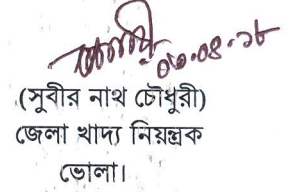 ০৩.০৪.১৮
(সুবীর নাথ চৌধুরী)
জেলা খাদ্য নিয়ন্ত্রক
ভোলা।